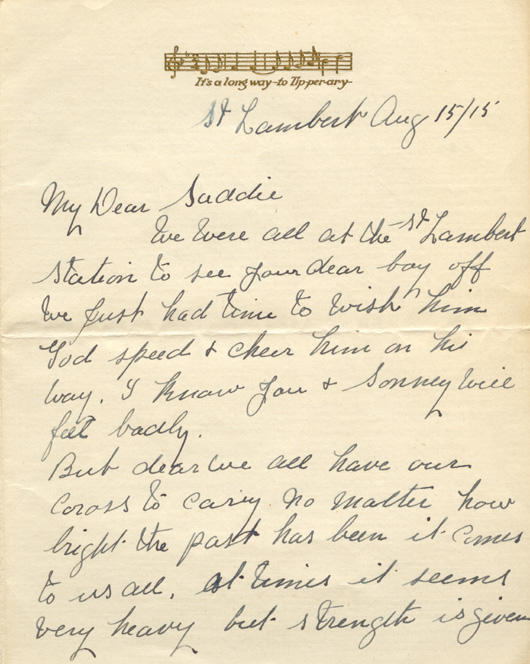 It's a long way to Tip-per-ary
St Lambert Aug 15/15
My Dear Saddie
We Were all at the St Lambert
Station to see your dear boy off
We Just had time to Wish him
God speed & cheer him on his
way. I know you & Sonney Will
felt badly.
But dear We all have our
Cross to carry no matter how
bright the past has been it comes
to us all, at times it seems
Very heavy but strength is given